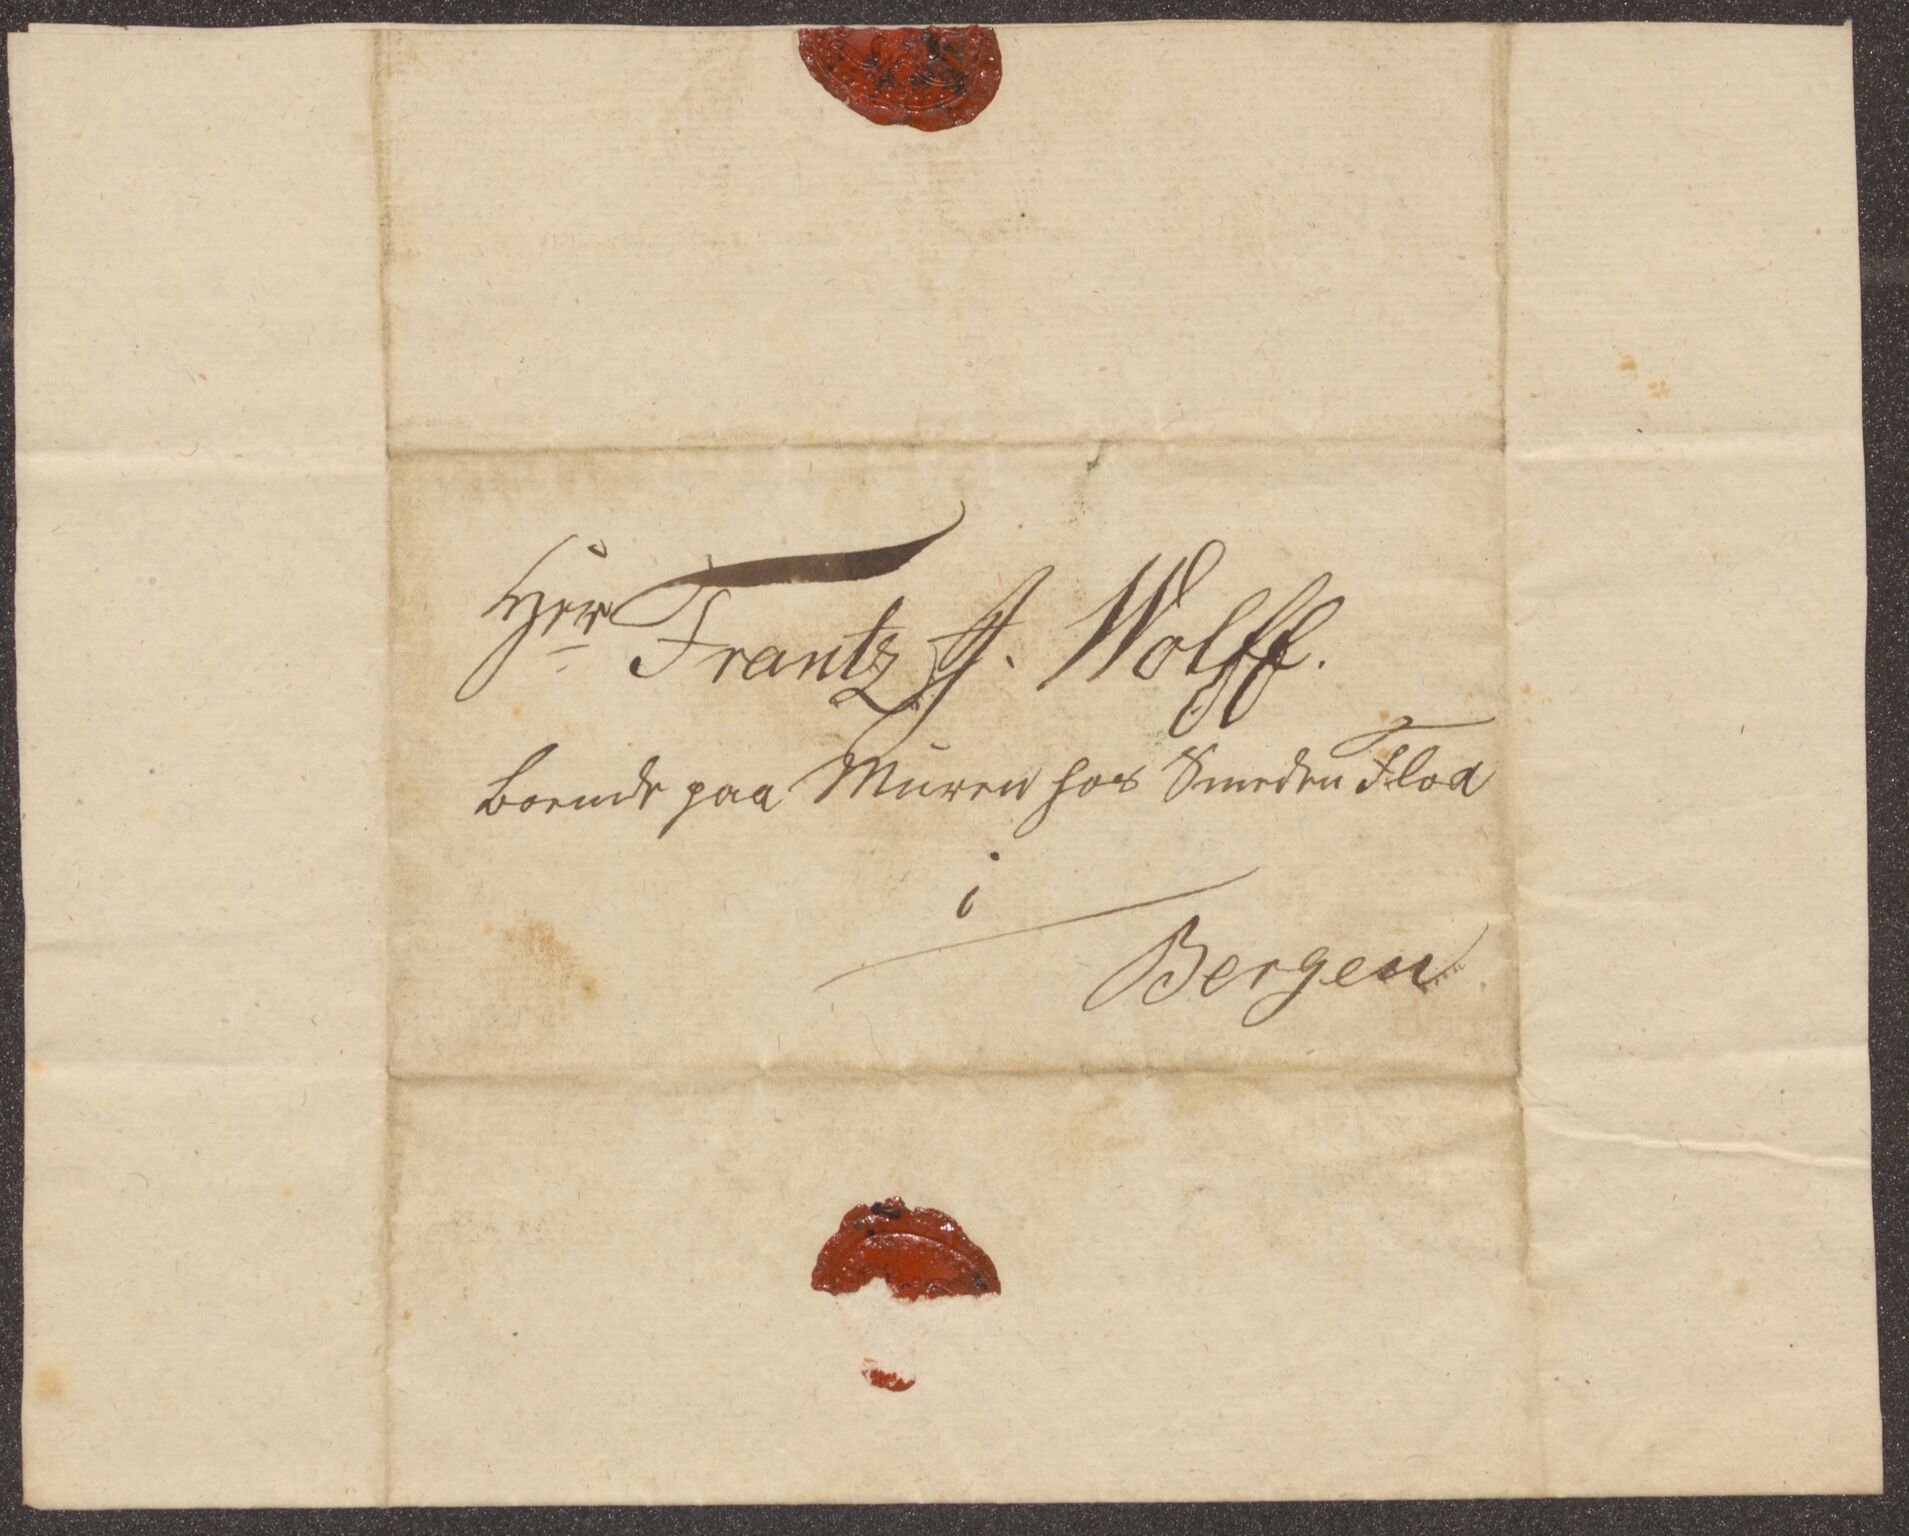 Herr Frantz J. Wolff.
boende paa Muren hos Smeden Flod
i
Bergen